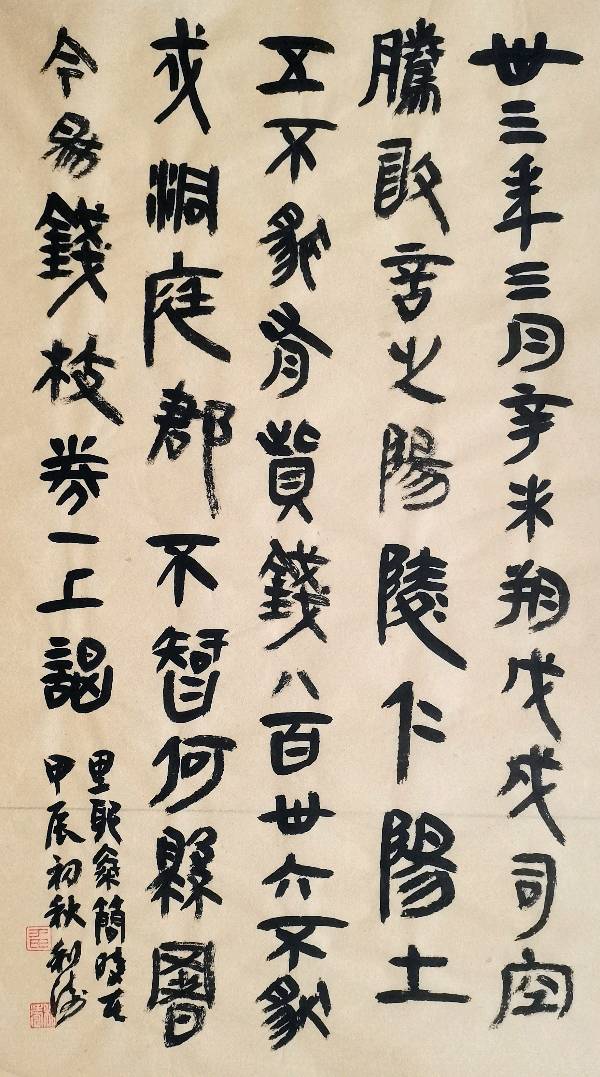 卅三年三月辛未朔戊戌司空
騰敢言之陽陵仁陽士
五不豤有貲錢八百卅六不豤
戍洞庭郡不智何縣署
今為錢校券一上謁
里耶秦簡
甲辰初秋